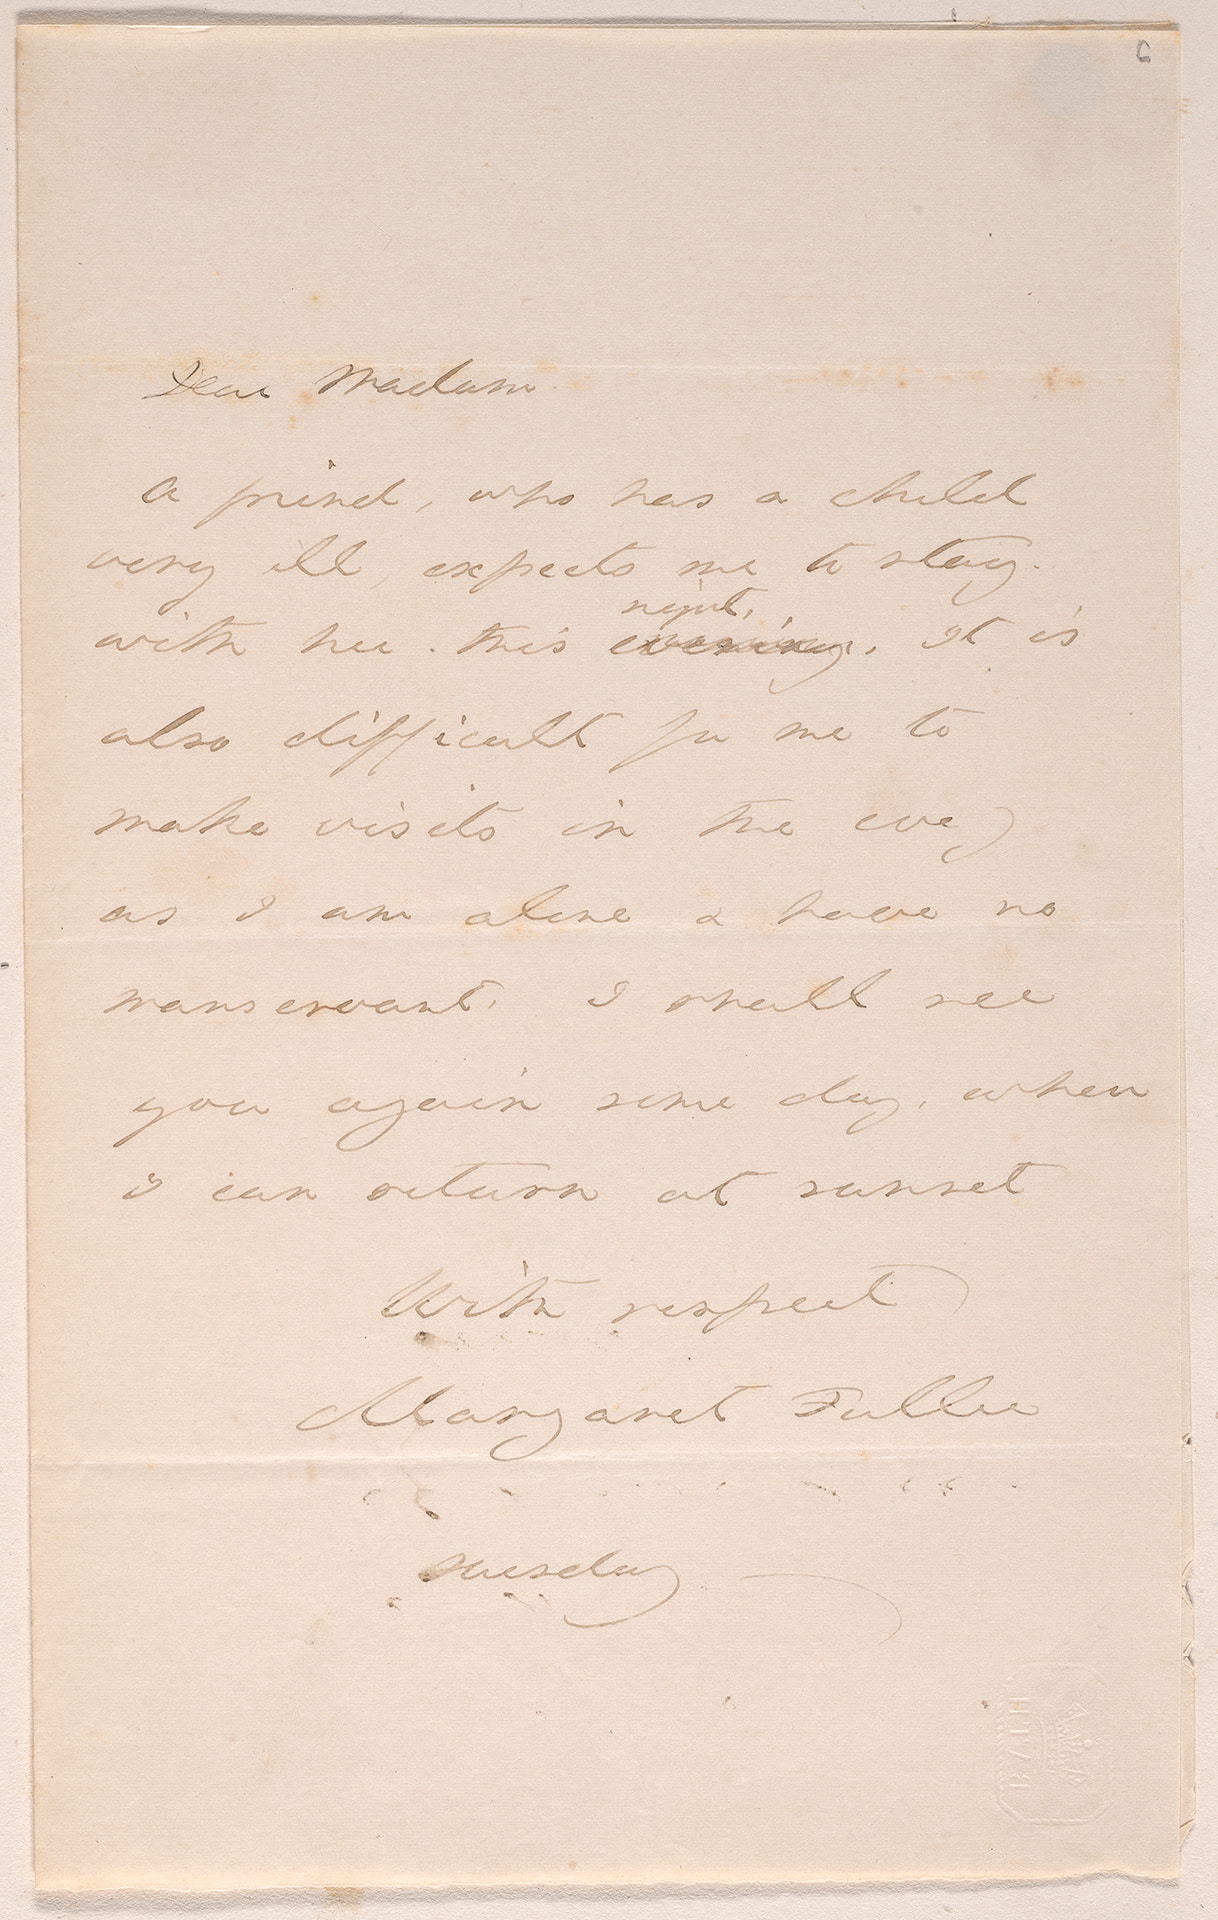 6
Dear Madam.
A friend, who has a child
very ill, expects me to stay.
with her. this evening night,. It is
also difficult for me to
make visits in the eveg
as I am alone & have no
manservant. I shall see
you again some day, when
I can return at sunset
With respect
Margaret Fuller
Tuesday
BATH